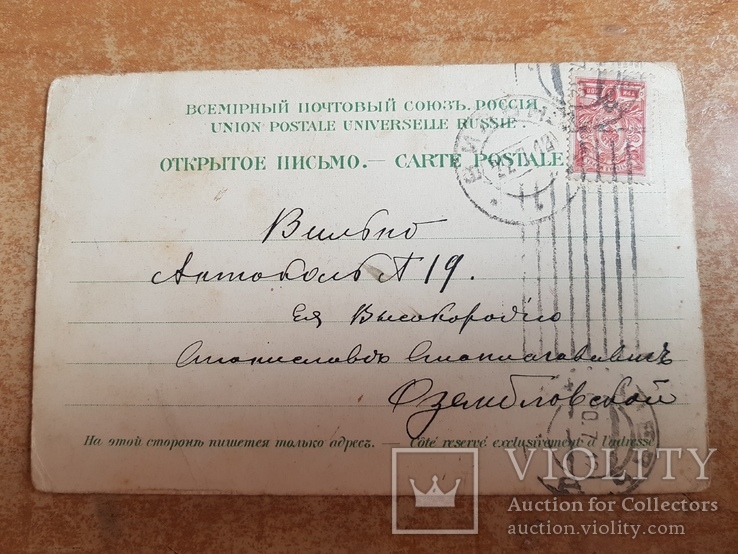 ВСЕМІРНЫЙ ПОЧТОВЫЙ СОЮЗЪ. РОССІЯ.
UNION POSTALE UNIVERSELLE RUSSIE.
ОТКРЫТОЕ ПИСЬМО. — CARTE POSTALE
Вильно
Антоколь № 19.
Ея Высокородію
Озембловской
На этой сторонѣ пишется только адресъ. — Côté réservé exclusivement à l'adresse
VIOLITY
Auction for Collectors
auction.violity.com